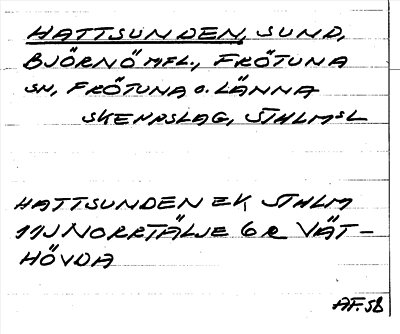 HATTSUNDEN, SUND,
BJÖRNÖ MFL., FRÖTUNA
SN, FRÖTUNA o. LÄNNA
SKEPPSLAG, STHLMSL
HATTSUNDEN EK STHLM
11J NORRTÄLJE 6 R VÄT-
HÖVDA
AF. SB